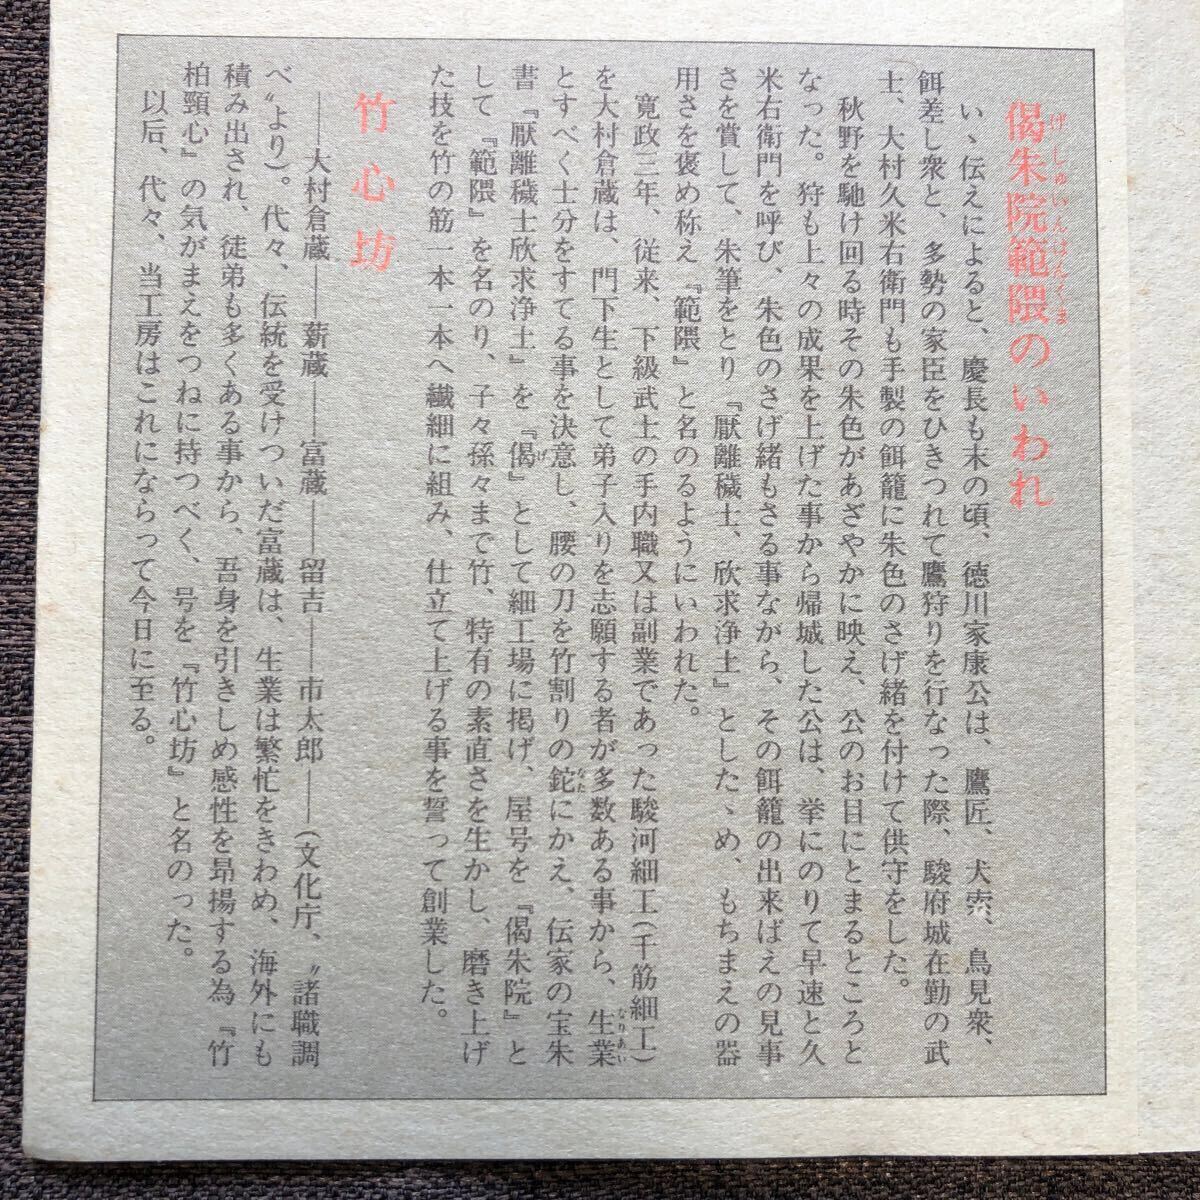 偈朱院範隈のいわれ
げしゅいんはんくま
いゝ伝えによると、慶長も末の頃、徳川家康公は、鷹匠、犬索、鳥見衆、
餌差し衆と、多勢の家臣をひきつれて鷹狩りを行なった際、駿府城在勤の武
士、大村久米右衛門も手製の餌籠に朱色のさげ緒を付けて供守をした。
秋野を馳け回る時その朱色があざやかに映え、公のお目にとまるところと
なった。狩も上々の成果を上げた事から帰城した公は、挙にのりて早速と久
米右衛門を呼び、朱色のさげ緒もさる事ながら、その餌籠の出来ばえの見事
さを賞して、朱筆をとり『厭離穢土、欣求浄土』としたゝめ、もちまえの器
用さを褒め称え『範隈』と名のるようにいわれた。
寛政三年、従来、下級武士の手内職又は副業であった駿河細工(千筋細工)
を大村倉蔵は、門下生として弟子入りを志願する者が多数ある事から、生業
なりあい
とすべく士分をすてる事を決意し、腰の刀を竹割りの鉈にかえ、伝家の宝朱
なた
書『厭離穢土欣求浄土』を『偈』として細工場に掲げ、屋号を『偈朱院』と
げ
して『範隈』を名のり、子々孫々まで竹、特有の素直さを生かし、磨き上げ
た技を竹の筋一本一本へ繊細に組み、仕立て上げる事を誓って創業した。
竹心坊
――大村倉蔵――薪蔵――富蔵――留吉――市太郎――(文化庁、〝諸職調
べ〟より)。代々、伝統を受けついだ富蔵は、生業は繁忙をきわめ、海外にも
積み出され、徒弟も多くある事から、吾身を引きしめ感性を昂揚する為『竹
柏頸心』の気がまえをつねに持つべく、号を『竹心坊』と名のった。
以后、代々、当工房はこれにならって今日に至る。